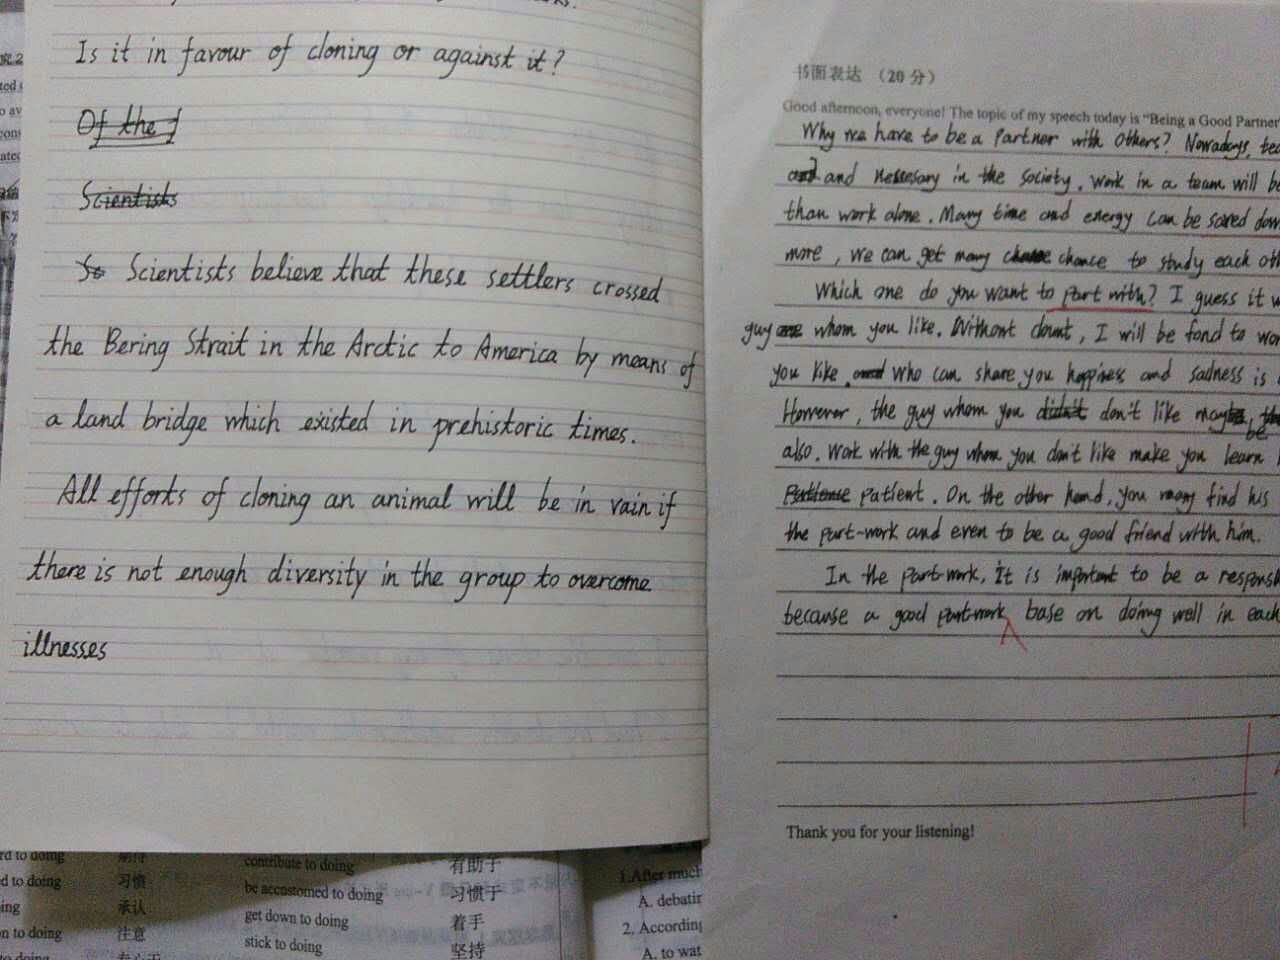 Is it in favour of cloning or against it?
Of the f
Scientists
So Scientists believe that these settlers crossed
the Bering Strait in the Arctic to America by means of
a land bridge which existed in prehistoric times.
All efforts of cloning an animal will be in vain if
there is not enough diversity in the group to overcome
illnesses
书面表达 （20 分）
Good afternoon, everyone! The topic of my speech today is "Being a Good Partner"
Why we have to be a partner with others? Nowadays,
and and nessesary in the society. Work in a team will be
than work alone. Many time and energy can be saved down
more, we can get many chance to study each
Which one do you want to part with? I guess it
guy whom you like. Without dount, I will be fond to
you like. and who can share you happiness and sadness is
However, the guy whom you didn't don't like
be
also. Work with the guy whom you don't like make you learn
Patience patient. On the other hand, you many find his
the part-work and even to be a good friend with him.
In the part-work, it is important to be a
because a good part-work base on doing well in each
Thank you for your listening!
d to doing 习惯
承认
to doing 注意
to doing
contribute to doing 有助于
be accustomed to doing 习惯于
get down to doing 着手
stick to doing 坚持
1.After much
A. debatin
2. According
A. to wat